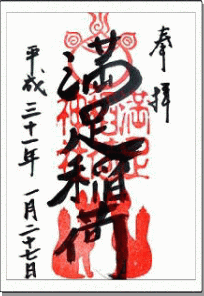 奉拝
満足稲荷
満足
稲荷
神社
平成三十一年一月二十七日